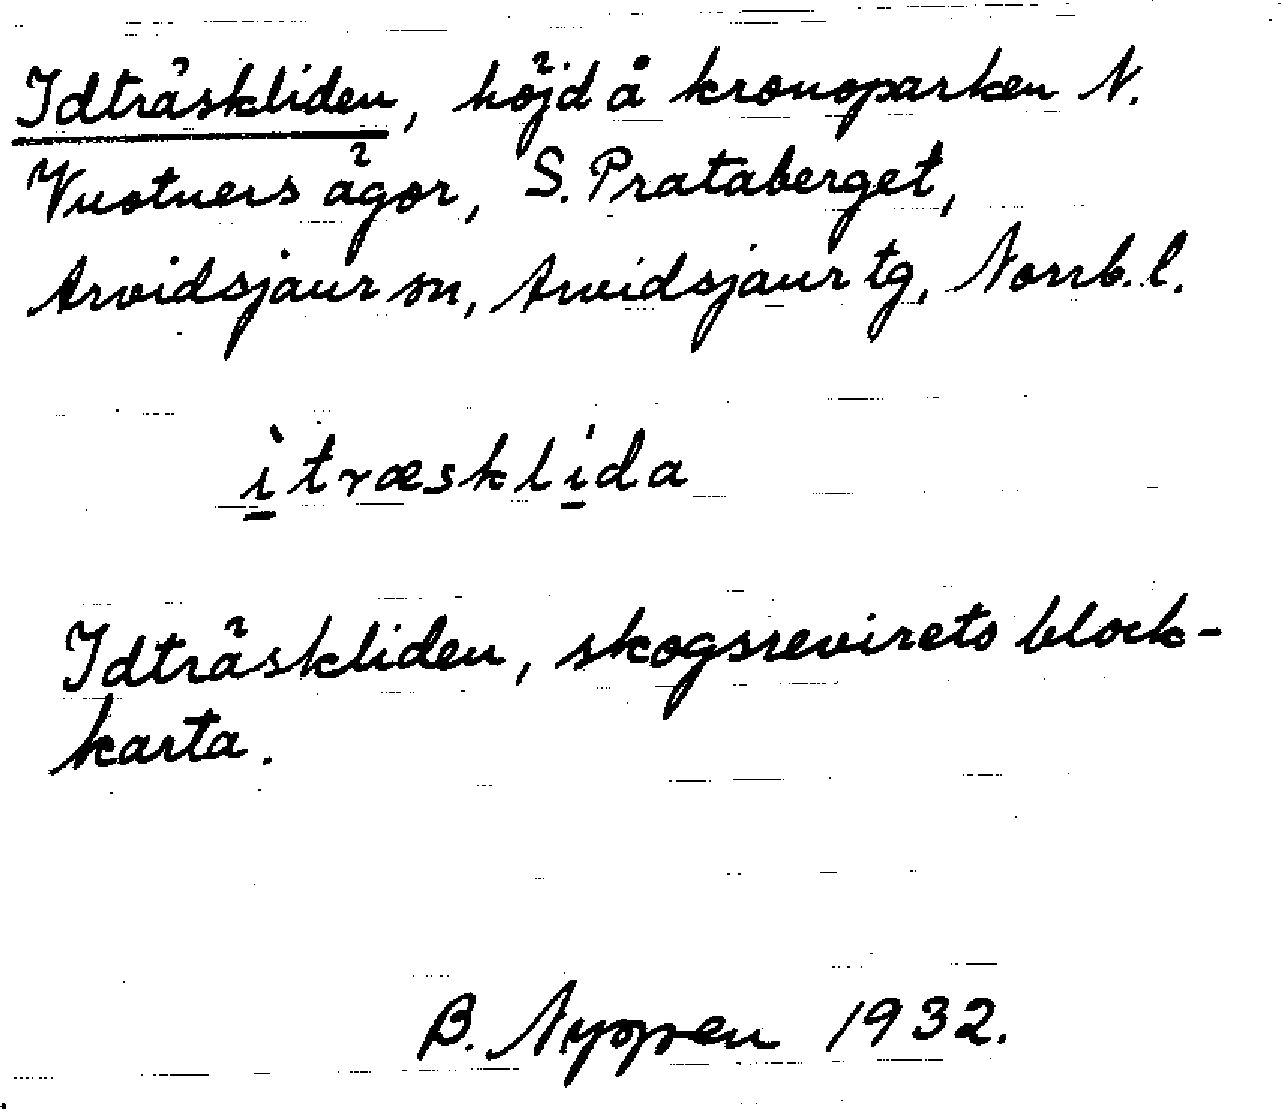 Idträskliden, höjd å kronoparken N.
Vuotners ägor, S. Prataberget,
Arvidsjaur sn, Arvidsjaur tg, Norrb. l.
ìtræsklída
Idträskliden, skogsrevirets block-
karta.
B. 1932.